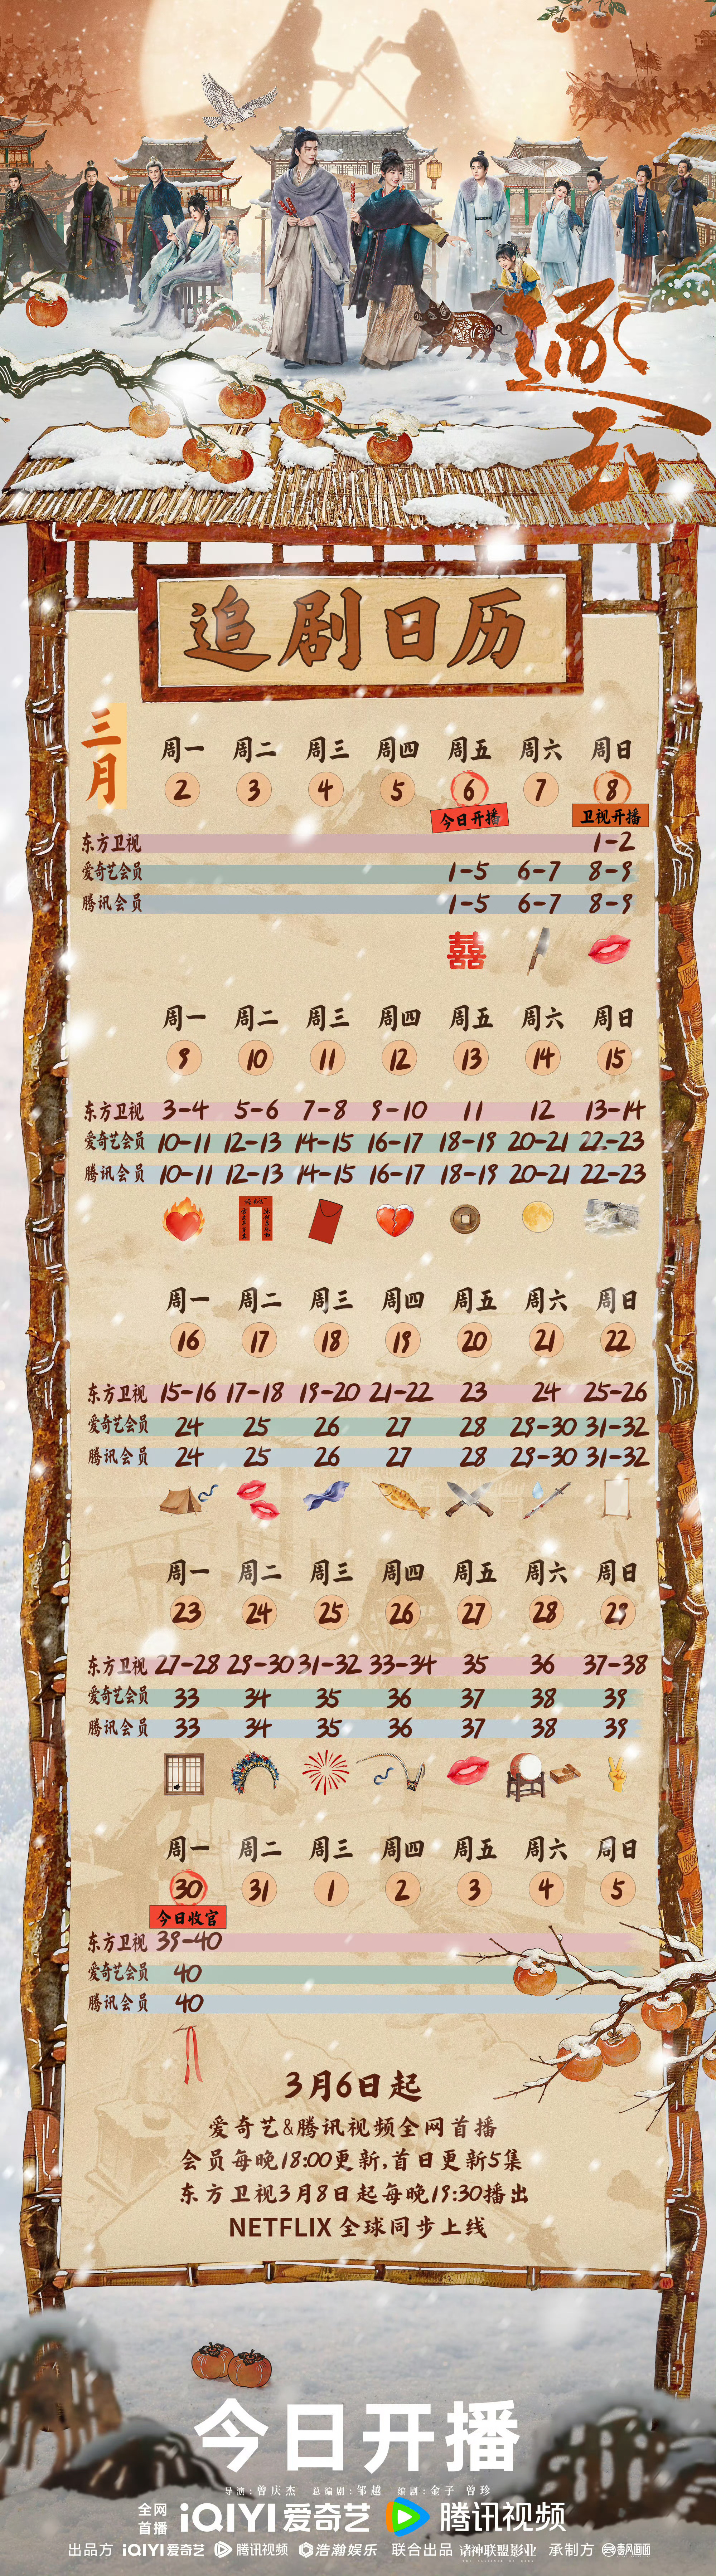 逐玉
追剧日历
三月
周一 周二 周三 周四 周五 周六 周日
2 3 4 5 6 7 8
今日开播 卫视开播
东方卫视 1-2
爱奇艺会员 1-5 6-7 8-9
腾讯会员 1-5 6-7 8-9
囍
周一 周二 周三 周四 周五 周六 周日
9 10 11 12 13 14 15
东方卫视 3-4 5-6 7-8 9-10 11 12 13-14
爱奇艺会员 10-11 12-13 14-15 16-17 18-19 20-21 22-23
腾讯会员 10-11 12-13 14-15 16-17 18-19 20-21 22-23
周一 周二 周三 周四 周五 周六 周日
16 17 18 19 20 21 22
东方卫视 15-16 17-18 19-20 21-22 23 24 25-26
爱奇艺会员 24 25 26 27 28 29-30 31-32
腾讯会员 24 25 26 27 28 29-30 31-32
周一 周二 周三 周四 周五 周六 周日
23 24 25 26 27 28 29
东方卫视 27-28 29-30 31-32 33-34 35 36 37-38
爱奇艺会员 33 34 35 36 37 38 39
腾讯会员 33 34 35 36 37 38 39
周一 周二 周三 周四 周五 周六 周日
30 31 1 2 3 4 5
今日收官
东方卫视 39-40
爱奇艺会员 40
腾讯会员 40
3月6日起
爱奇艺&腾讯视频全网首播
会员每晚18:00更新,首日更新5集
东方卫视3月8日起每晚19:30播出
NETFLIX 全球同步上线
今日开播
导演:曾庆杰 总编剧:邹越 编剧:金子 曾珍
全网首播 iQIYI 爱奇艺 腾讯视频
出品方 iQIYI 爱奇艺 腾讯视频 浩瀚娱乐 联合出品 诸神联盟影业 承制方 春风画面